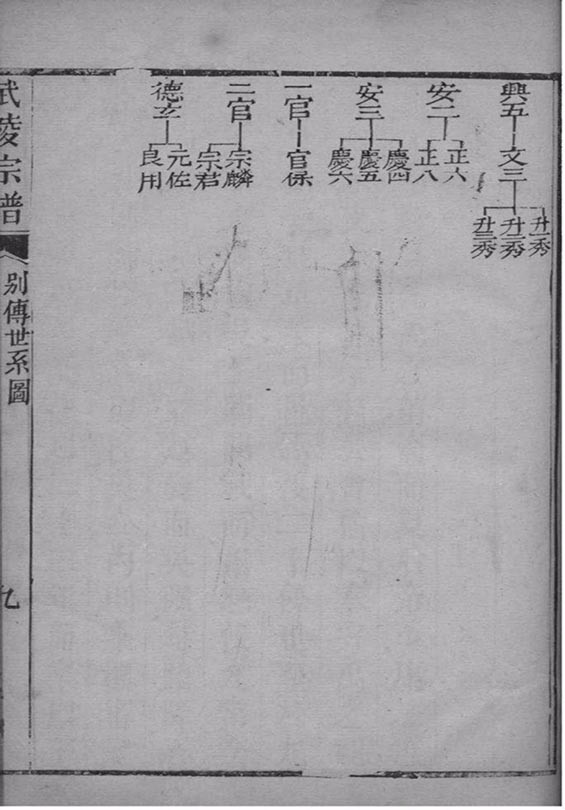 興五
文三
升一秀
升二秀
升三秀
安二
正六
正八
安三
慶四
慶五
慶六
一官
官保
二官
宗麟
宗君
德玄
元佐
良用
武陵宗譜
別傳世系圖
九